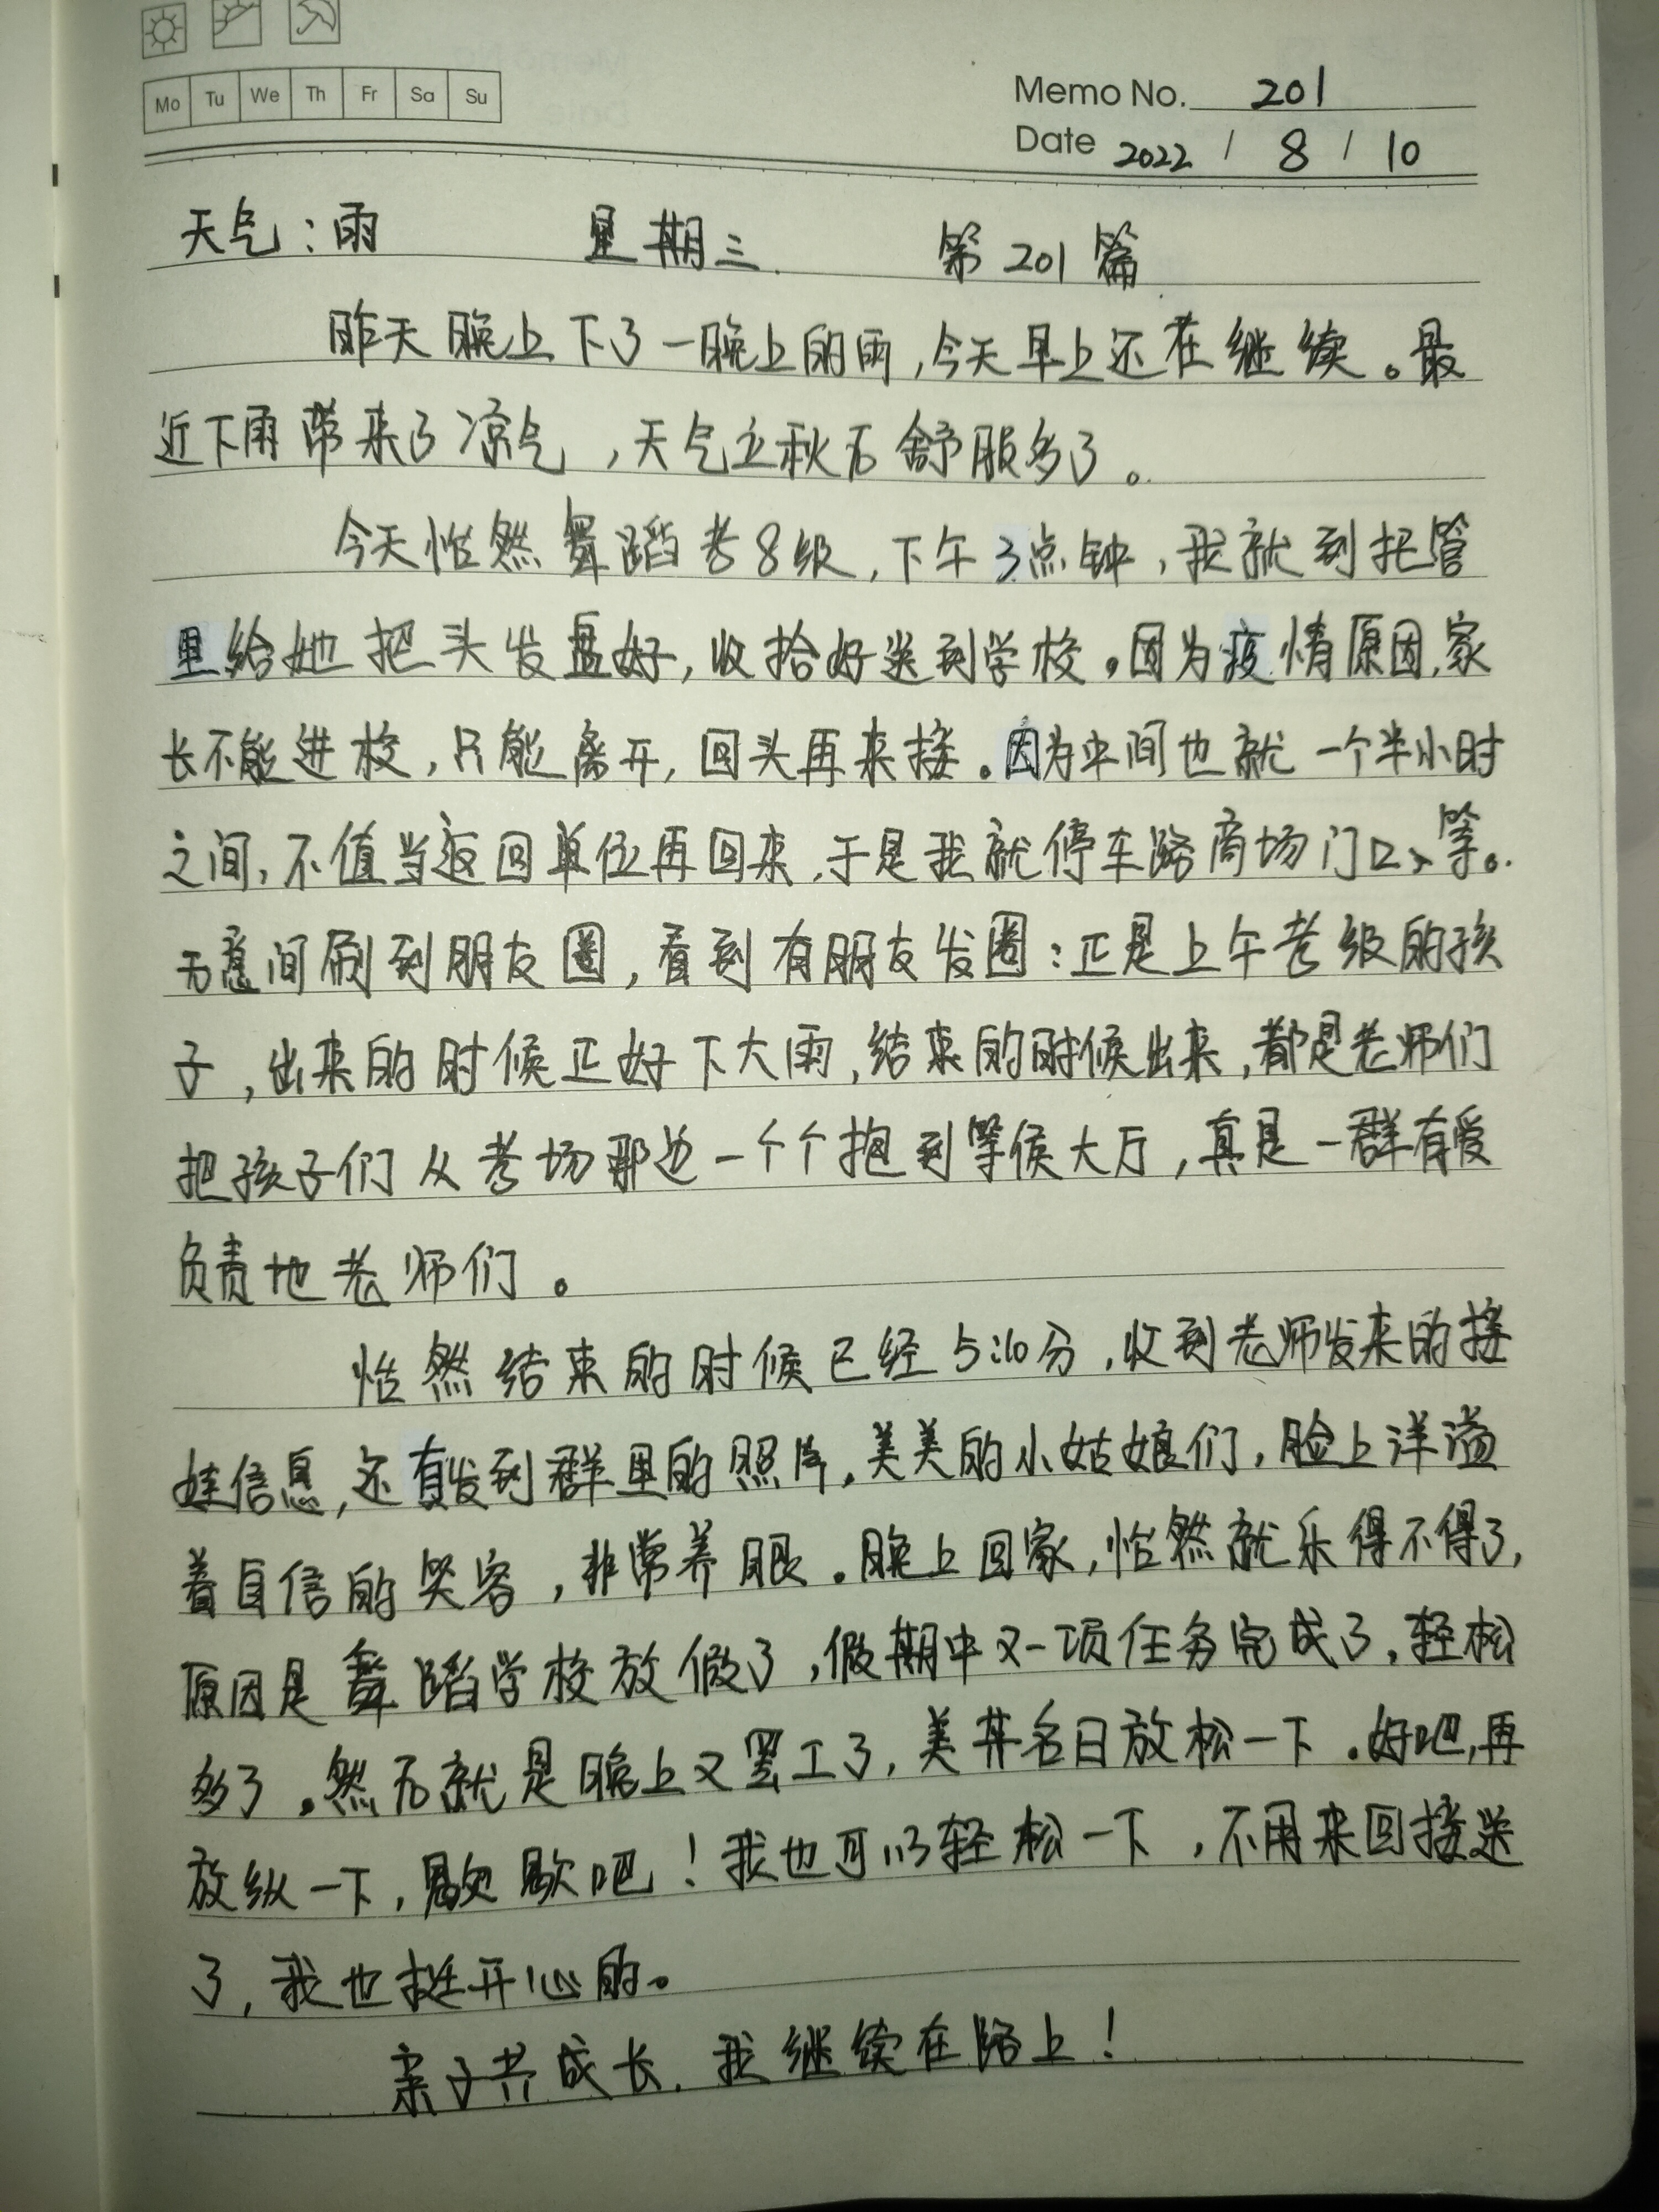 Mo Tu We Th Fr Sa Su
Memo No. 201
Date 2022 / 8 / 10
天气：雨 星期三 第201篇
昨天晚上下了一晚上的雨，今天早上还在继续。最
近下雨带来了凉气，天气立秋后舒服多了。
今天怡然舞蹈考8级，下午3点钟，我就到托管
里给她把头发盘好，收拾好送到学校。因为疫情原因，家
长不能进校，只能离开，回头再来接。因为中间也就一个半小时
之间，不值当返回单位再回来，于是我就停车路商场门口等。
无意间刷到朋友圈，看到有朋友发圈：正是上午考级的孩
子，出来的时候正好下大雨，结束的时候出来，都是老师们
把孩子们从考场那边一个个抱到等候大厅，真是一群有爱
负责地老师们。
怡然结束的时候已经5:10分，收到老师发来的接
娃信息，还有发到群里的照片，美美的小姑娘们，脸上洋溢
着自信的笑容，非常养眼。晚上回家，怡然就乐得不得了，
原因是舞蹈学校放假了，假期中又一项任务完成了，轻松
多了。然后就是晚上又罢工了，美其名曰放松一下。好吧，再
放纵一下，歇歇吧！我也可以轻松一下，不用来回接送
了，我也挺开心的。
亲子共成长，我继续在路上！